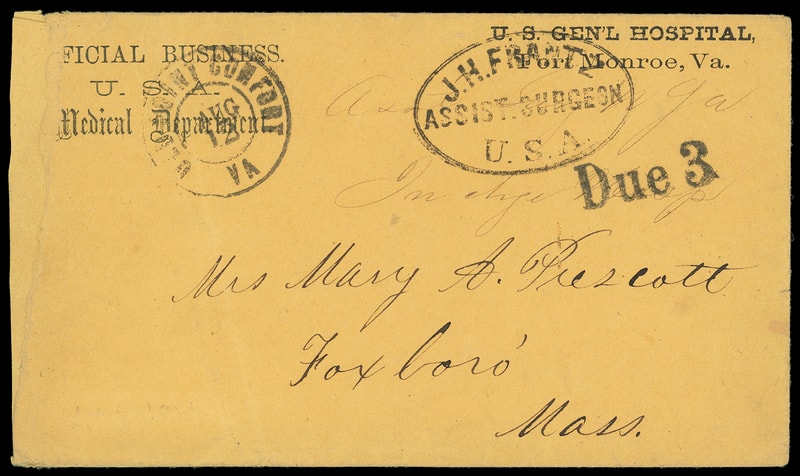 FICIAL BUSINESS.
U. S. A.
Medical Department.
U. S. GEN'L HOSPITAL,
Fort Monroe, Va.
OLD POINT COMFORT
AUG
12
VA
J.H. FRANTZ
ASSIST. SURGEON
U. S. A.
Due 3
Mrs Mary A. Prescott
Foxboro'
Mass.